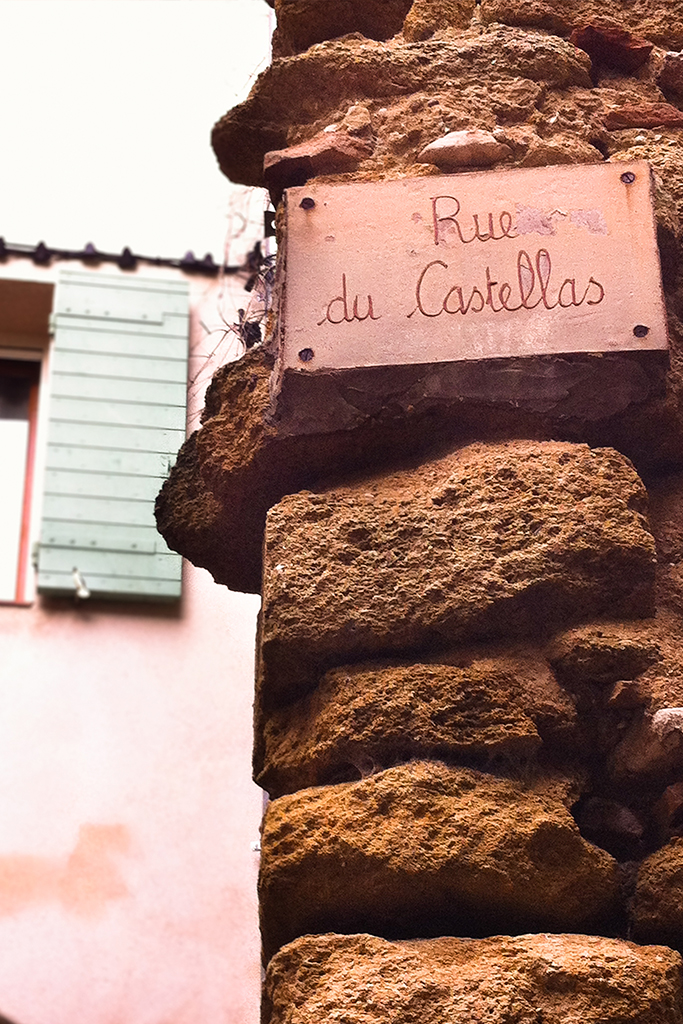 Rue
du Castellas